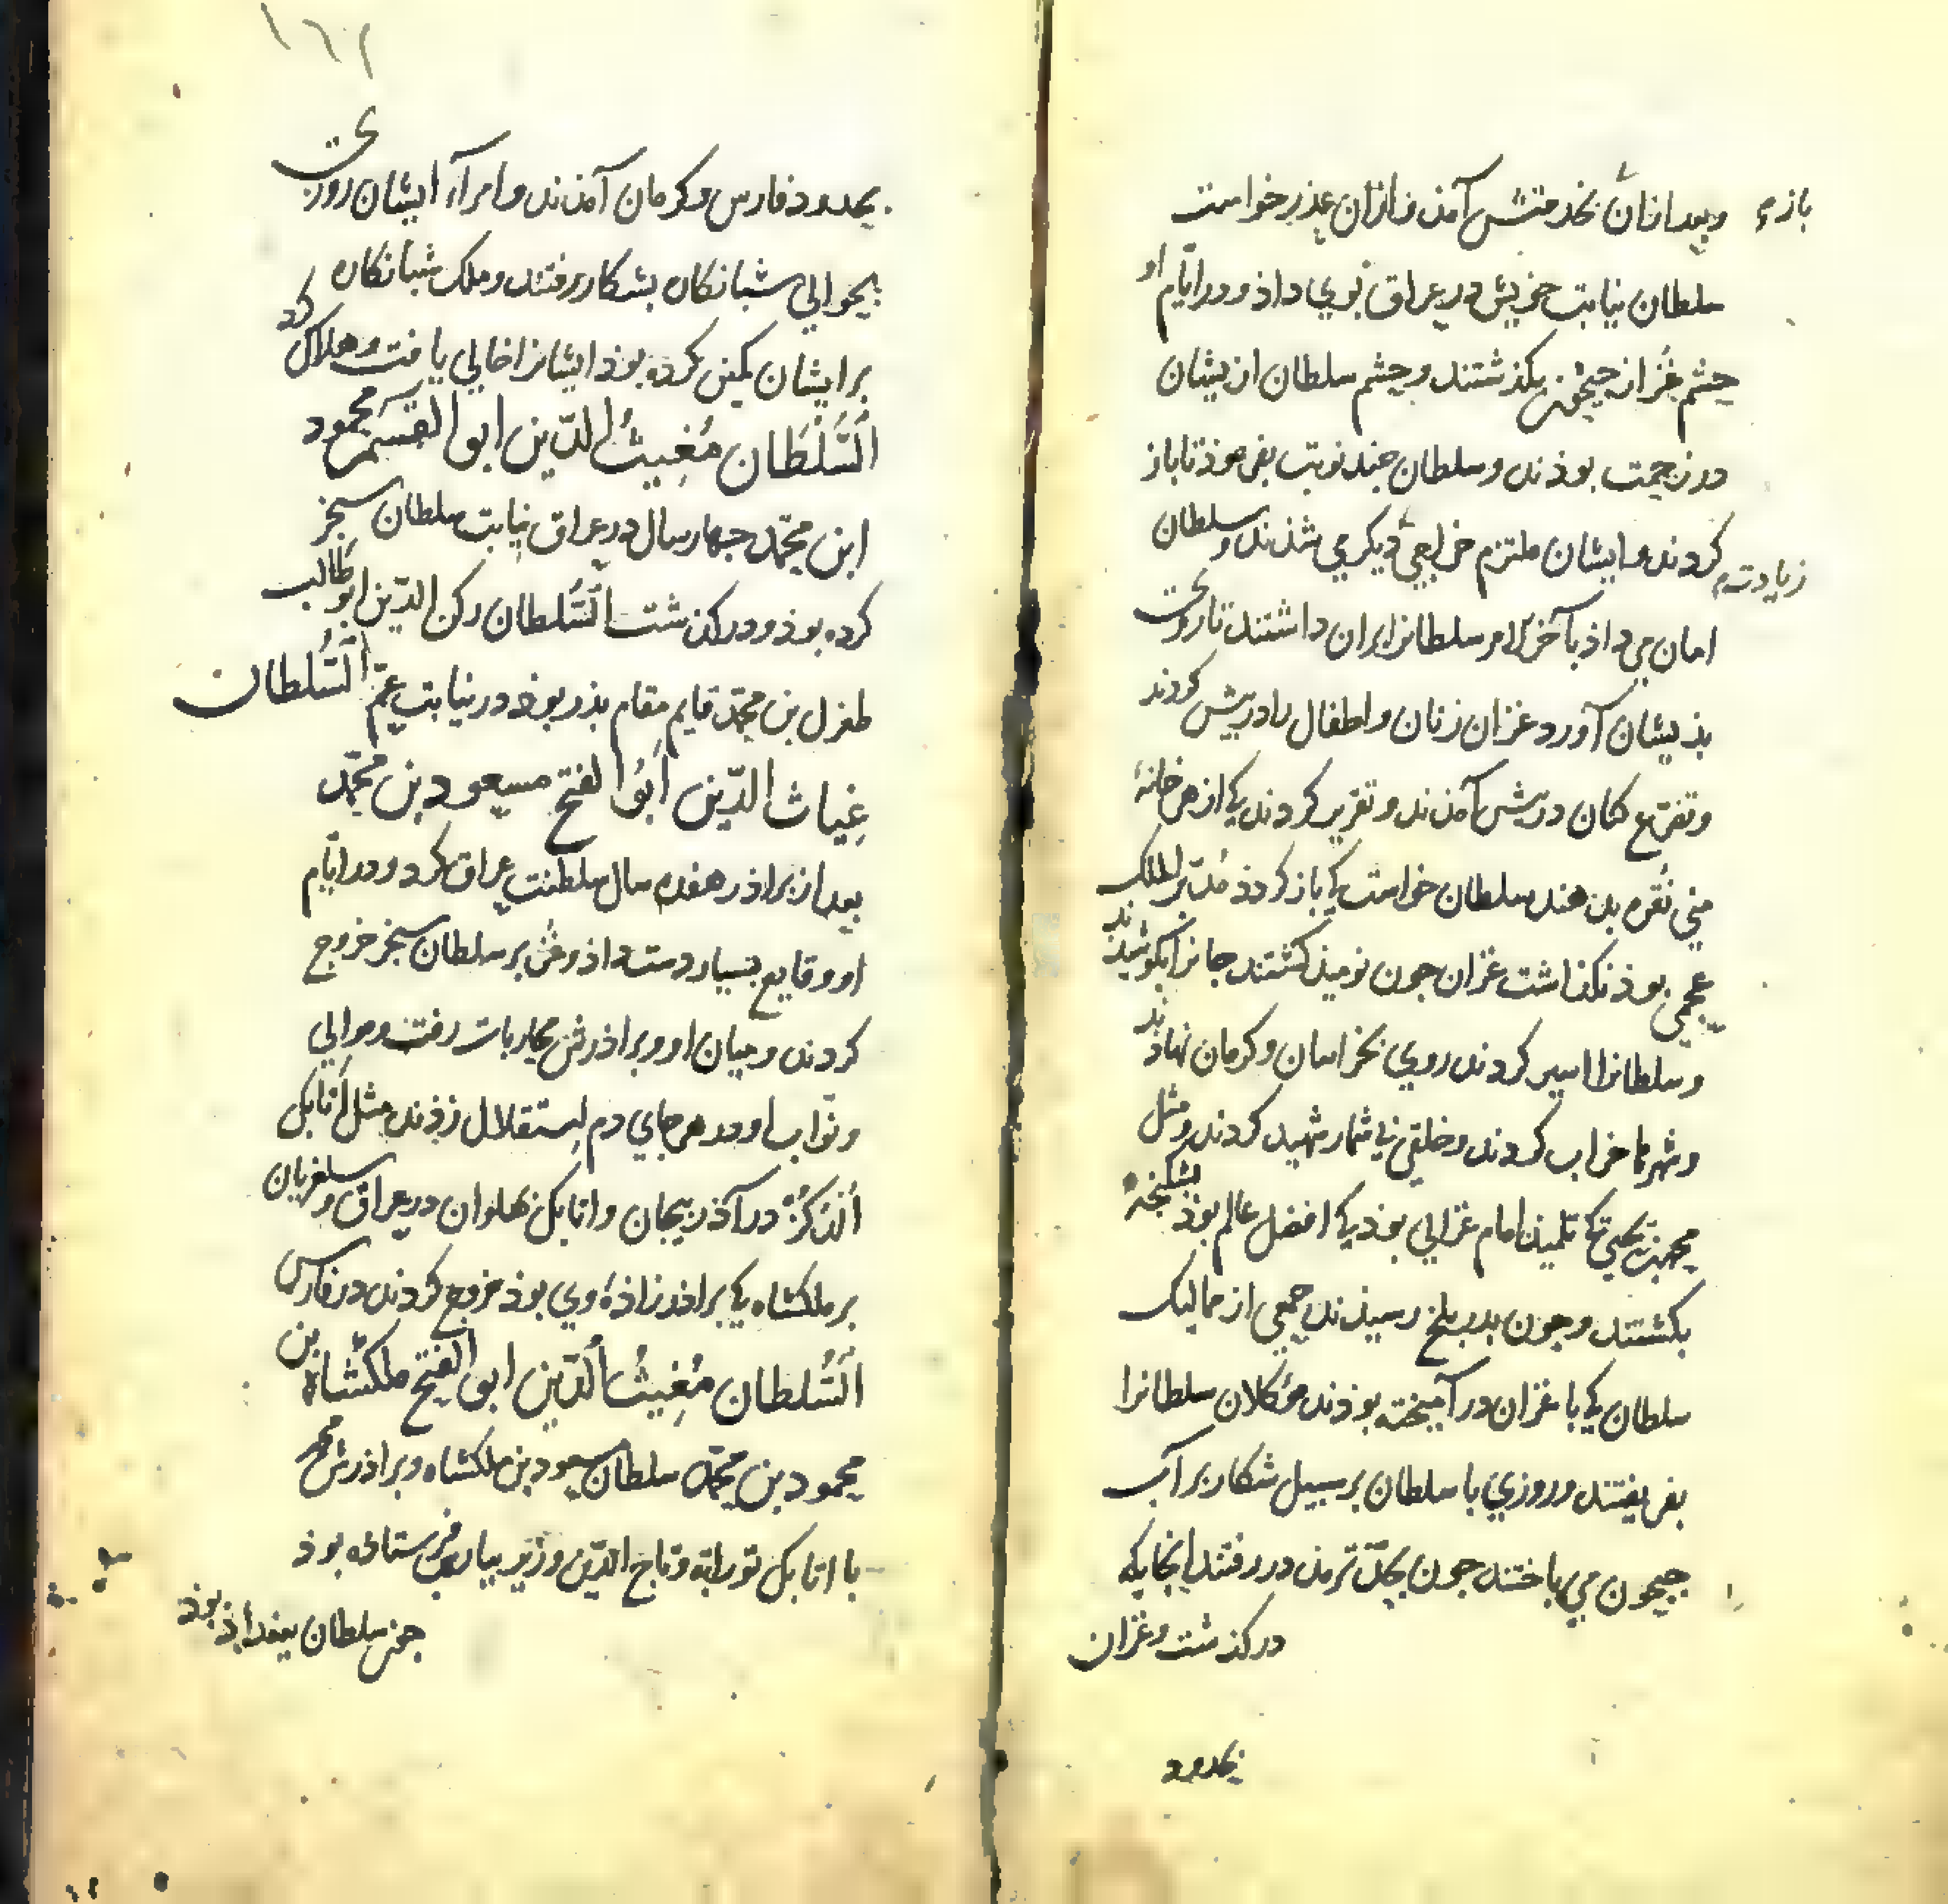 و بعد ازان بخدمتش آمذ و ازان عذر خواست
سلطان نیابت خویش در عراق بوي داذ و در ایّام او
حشم غُز از جیحون بکذشتند و حشم سلطان ازیشان
در زحمت بوذند و سلطان جند نوبت بفرموذ تا باز
کردند و ایشان ملتزم خراجي دیکر مي شذند و سلطان
زیادت
امان مي داذ بآخر الامر سلطانرا بران داشتند تا روي
بذیشان آورد غزان زنان و اطفال را در پیش کردند
و تضرع کنان در پیش آمذند و تقریر کردند کي از هر خانهٔ
مني نُقره بدهند سلطان خواست کي باز کردذ مُدبّر الملک
عجمي بوذ نکذاشت غزان جون نومیذ کشتند جانرا بکوشیذند
و سلطانرا اسیر کردند روي بخراسان و کرمان نهاذند
و شهرها خراب کردند و خلقي بي شمار شهید کردند و مثل
محمد بن یحیي کي تلمیذ امام غزالي بوذ کي افضل عالم بوذ بشکنجهٔ
بکشتند و جون بدر بلخ رسیذند جمعي از ممالیک
سلطان کي با غزان در آمیخته بوذند موکلان سلطانرا
بفریفتند و روزي با سلطان بر سبیل شکار بر آب
جیحون مي باختند جون بحدّ ترمذ در رفتند آنجایکه
در کذشت و غزان
بحدود
١٦٢
بحدود فارس و کرمان آمذند و امراء ایشان روزي
بحوالي شبانکاره بشکار رفتند و ملک شبانکاره
بر ایشان کمین کرده بوذ ایشانرا خالي یافت و هلاک کرد
اَلسُّلطَان مُغیثُ الدّین ابو القسم محمود
ابن محمّد جهار سال در عراق نیابت سلطان سنجر
کرده بوذ و در کذشت السُّلطان رکن الدّین ابو طالب
طغرل بن محمّد قایم مقام بذر بوذ در نیابت عمّ السُّلطان
غیاث الدّین ابُو الفتح مسعود بن محمّد
بعد از براذر هفده سال سلطنت عراق کرد و در ایّام
او وقایع بسیار دست داذ و غُز بر سلطان سنجر خروج
کردند و میان او و براذرش محاربات رفت و موالي
و نوّاب او در هر جاي دم استقلال زذند مثل اتابک
الذکز در آذربیجان و اتابک بهلوان در عراق و سلغریان
بر ملکشاه کي براذر زاذهٔ وي بوذ خروج کردند در فارس
اَلسُّلطان مُغیثُ الدّین ابو الفتح ملکشاه بن
محمود بن محمّد سلطان مسعود بن ملکشاه و براذرش محمد
با اتابک بوزابه و تاج الدّین وزیر بپارس فرستاذه بوذ
جون سلطان ببغداذ بوذ